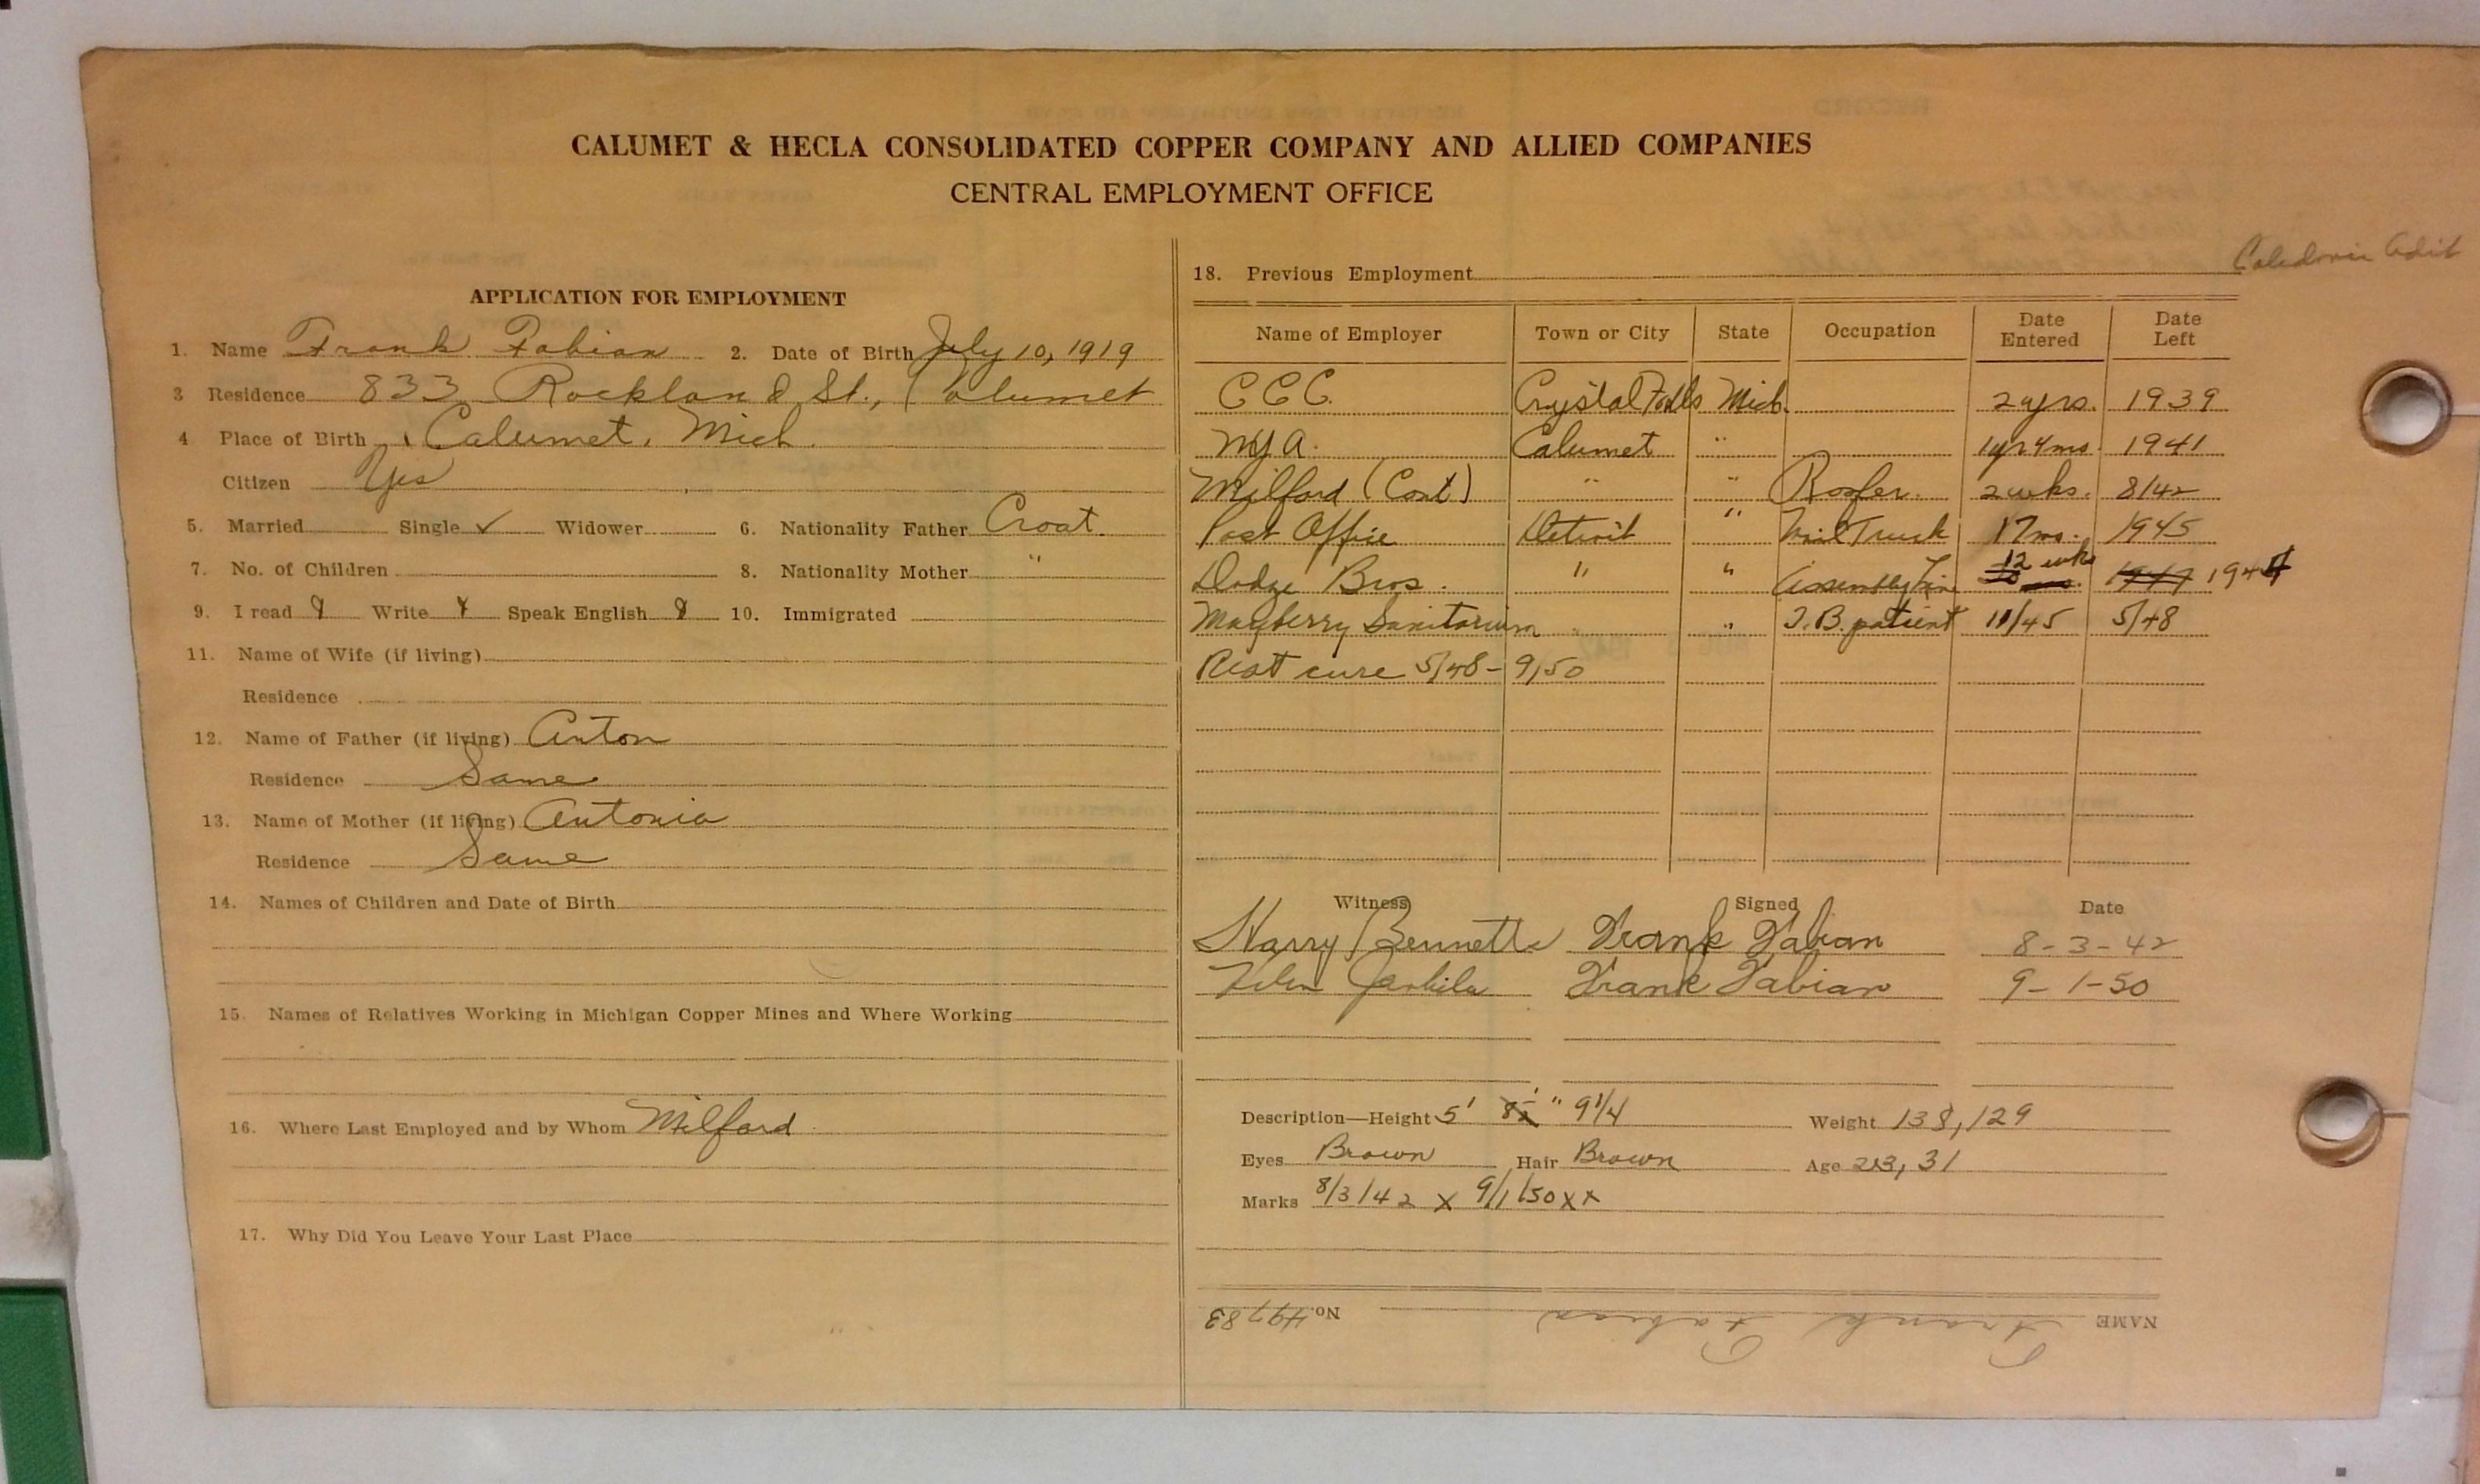 CALUMET & HECLA CONSOLIDATED COPPER COMPANY AND ALLIED COMPANIES
CENTRAL EMPLOYMENT OFFICE
APPLICATION FOR EMPLOYMENT
1. Name Frank Fabian 2. Date of Birth July 10, 1919
3 Residence 833 Rockland St., Calumet
4 Place of Birth Calumet, Mich.
Citizen Yes
5. Married Single ✓ Widower 6. Nationality Father Croat.
7. No. of Children 8. Nationality Mother "
9. I read Y Write Y Speak English Y 10. Immigrated
11. Name of Wife (if living)
Residence
12. Name of Father (if living) Anton
Residence Same
13. Name of Mother (if living) Antonia
Residence Same
14. Names of Children and Date of Birth
15. Names of Relatives Working in Michigan Copper Mines and Where Working
16. Where Last Employed and by Whom Milford
17. Why Did You Leave Your Last Place
18. Previous Employment Caledonia Adit
Name of Employer Town or City State Occupation Date Entered Date Left
C C C. Crystal Falls Mich. 2 yrs. 1939
NYA. Calumet " 1 yr 4 mo. 1941
Milford (Cont) " " Roofer. 2 wks. 8/42
Post Office Detroit " Mail Truck 17 mo. 1945
Dodge Bros. " " Assembly Line 12 wks 1947 194
Mayberry Sanitarium " " T.B. patient 11/45 5/48
Rest cure 5/48 - 9/50
Witness Signed Date
Harry Bennetts Frank Fabian 8-3-42
Helen Frank Fabian 9-1-50
Description—Height 5' 8 " 9 1/4 Weight 138, 129
Eyes Brown Hair Brown Age 23, 31
Marks 8/3/42 X 9/1/50 XX
NAME Frank Fabian No. 49783